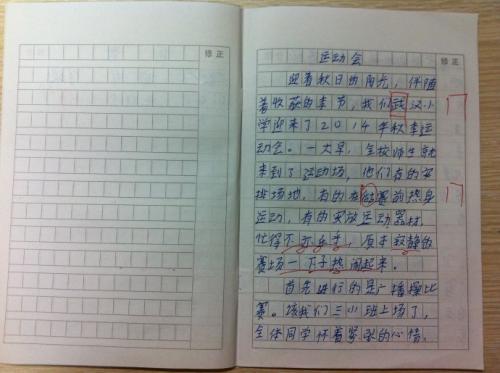 修正
修正
运动会
迎着秋日的阳光，伴随
着收获的季节，我们武汉小
学迎来了2014年秋季运
动会。一大早，全校师生就
来到了运动场，他们有的安
排场地，有的在做赛前热身
运动，有的安放运动器材，
忙得不亦乐乎，原本寂静的
赛场一下子热闹起来。
首先进行的是广播操比
赛。该我们三小班上场了，
全体同学怀着紧张的心情，